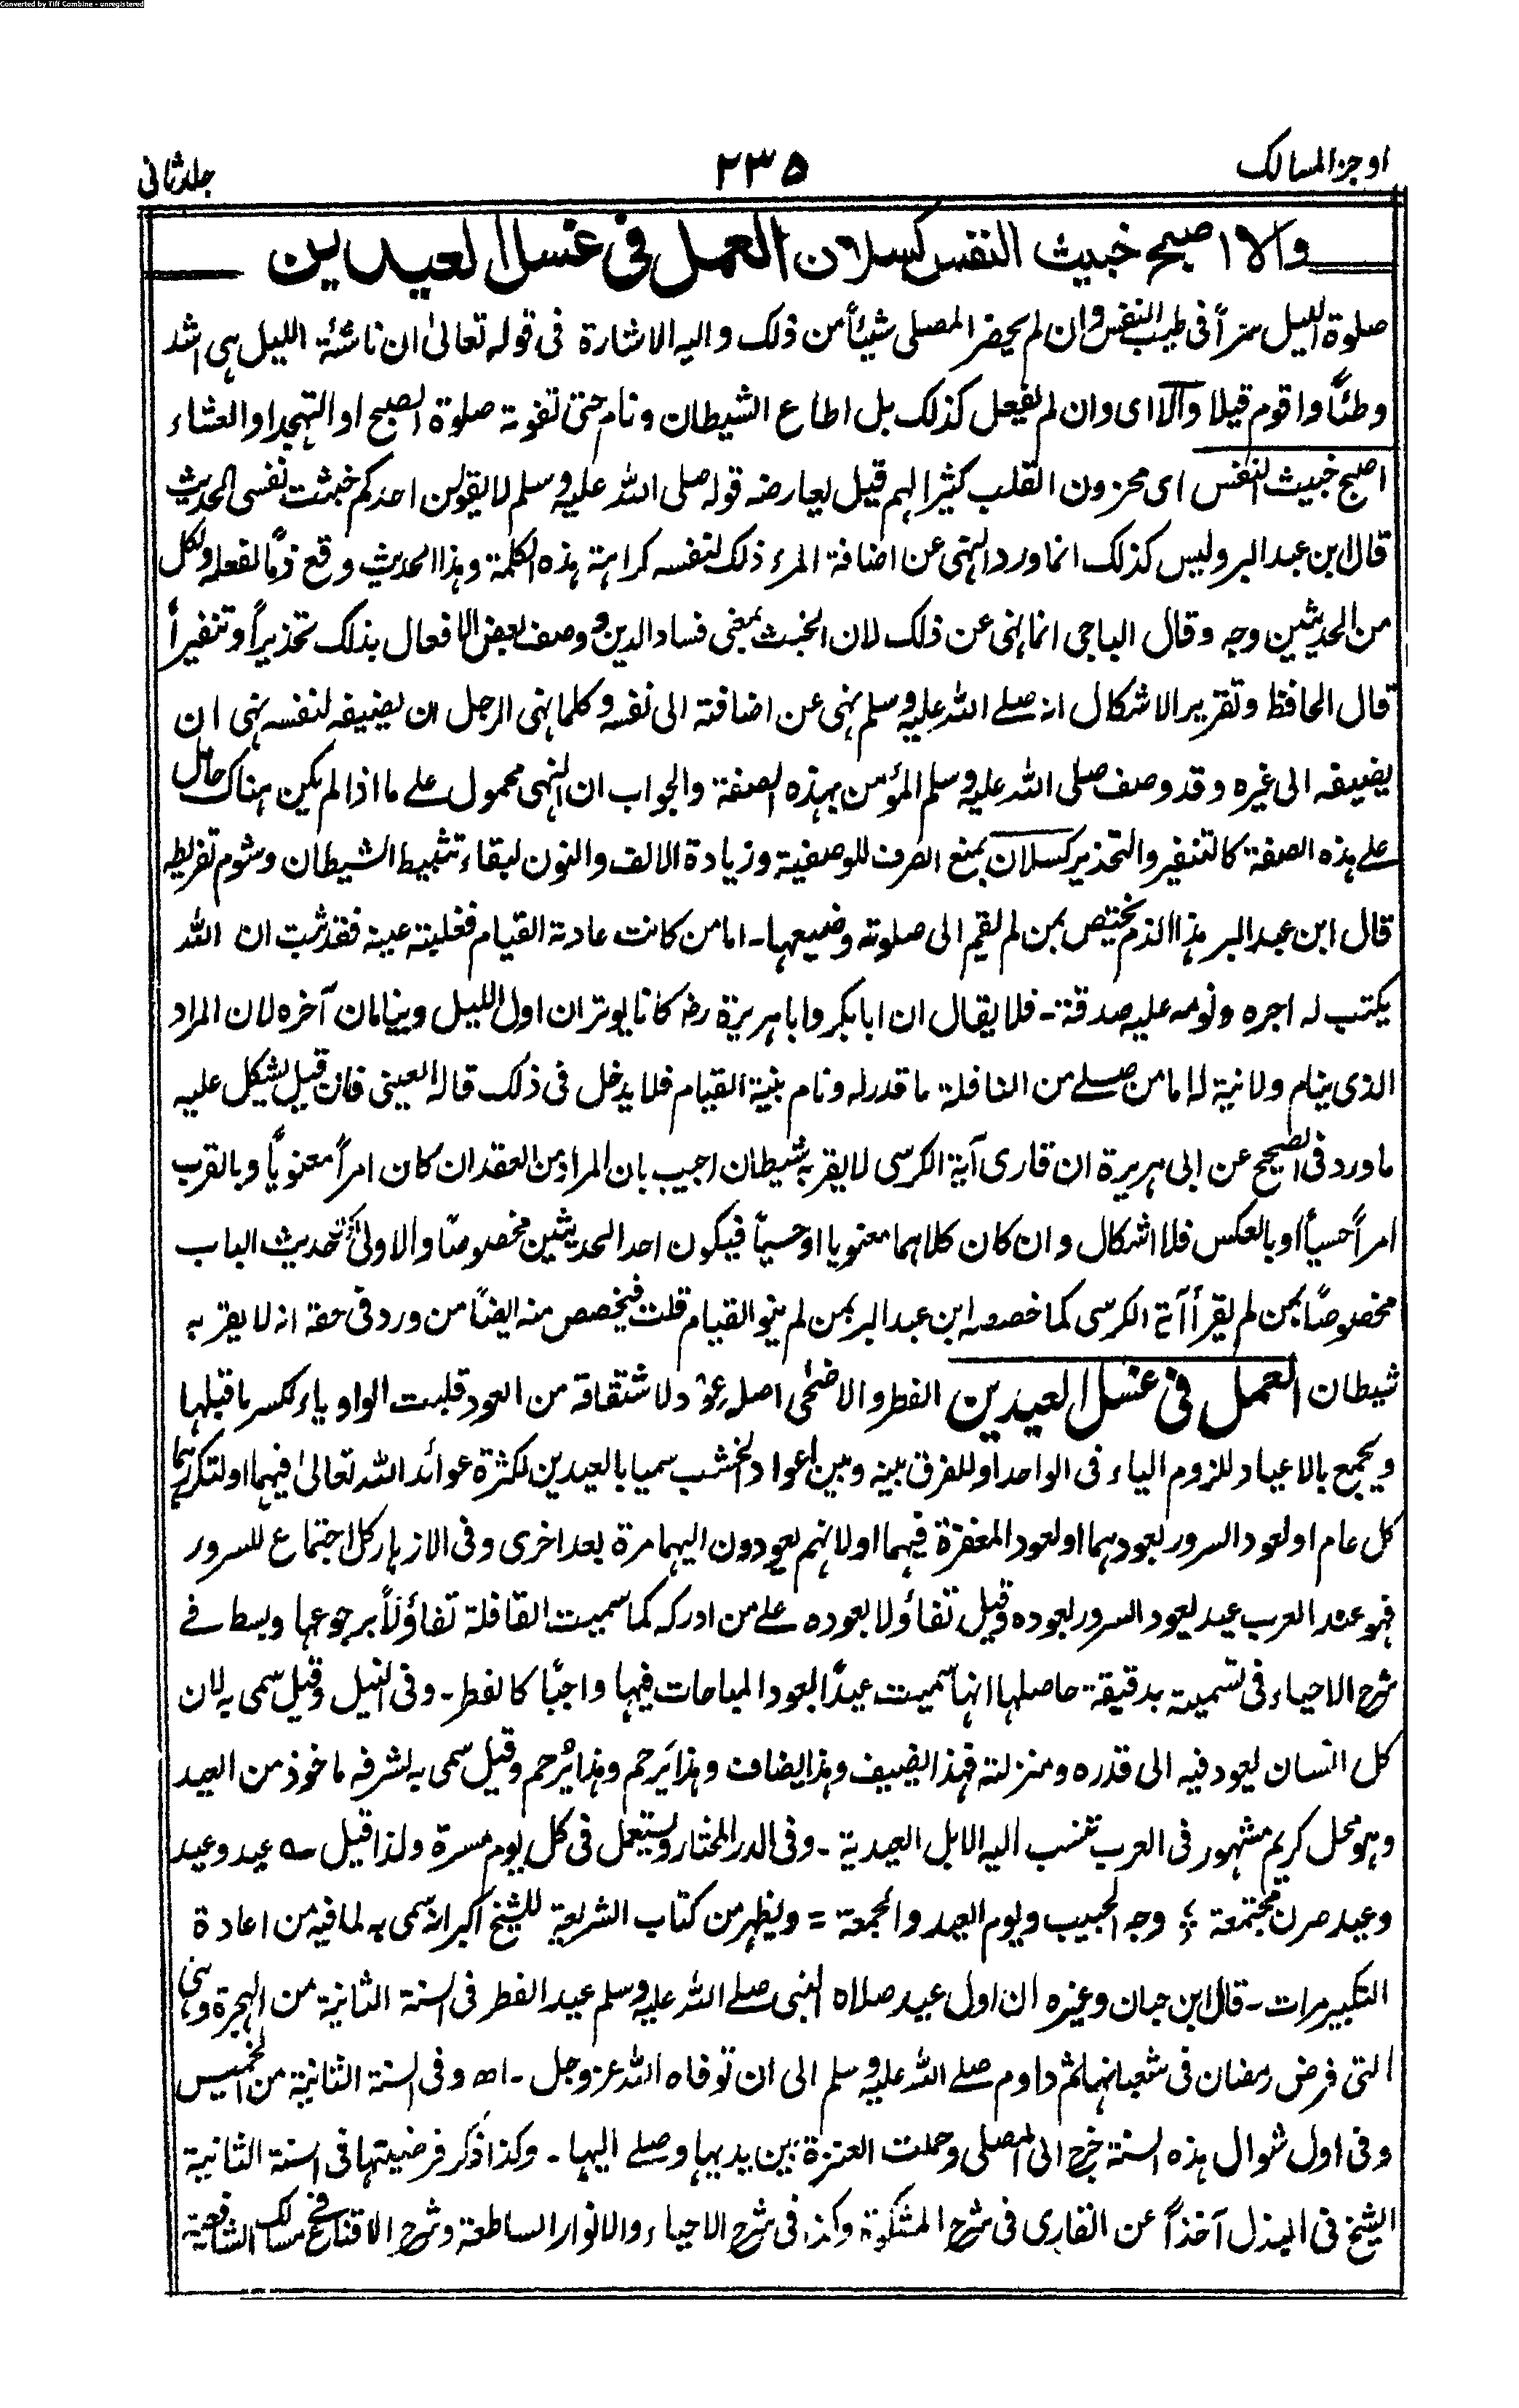 Converted by Tiff Combine - unregistered
اوجز المسالک ۲۳۵ جلد ثانی
والا اصبح خبيث النفس كسلان العمل فى غسل العيدين
صلوة الليل سراً فى طيب النفس وان لم يحضر المصلى شيئاً من ذلک واليه الاشارة فى قوله تعالىٰ ان ناشئة الليل هى اشد
وطئاً واقوم قيلا والا اى وان لم يفعل كذلک بل اطاع الشيطان ونام حتى تفوته صلوة الصبح او التهجد او العشاء
اصبح خبيث النفس اى محزون القلب كثير الهم قيل يعارضه قوله صلى الله عليه وسلم لا يقولن احدكم خبثت نفسى الحديث
قال ابن عبد البر وليس كذلک انما ورد النهى عن اضافة المرء ذلک لنفسه كراهة هذه الكلمة وهذا الحديث وقع ذماً لفعله ولكل
من الحديثين وجه وقال الباجى انما نهى عن ذلک لان الخبث بمعنى فساد الدين ووصف بعض الافعال بذلک تحذيراً وتنفيراً
قال الحافظ وتقرير الاشكال انه صلے الله عليه وسلم نهى عن اضافته الى نفسه وكلما نهى الرجل ان يضيفه لنفسه نهى ان
يضيفه الى غيره وقد وصف صلى الله عليه وسلم المؤمن بهذه الصفة والجواب ان النهى محمول علے ما اذا لم يكن هناک حامل
علے هذه الصفة كالتنفير والتحذير كسلان بمنع الصرف للوصفية وزيادة الالف والنون لبقاء تثبيط الشيطان وشوم تفريطه
قال ابن عبد البر هذا الذم يختص بمن لم يقم الى صلوته وضيعها۔ اما من كانت عادته القيام فغلبته عينه فقد ثبت ان الله
يكتب له اجره ونومه عليه صدقة۔ فلا يقال ان ابا بكر وابا هريرة رضه كانا يوتران اول الليل وينامان آخره لان المراد
الذى ينام ولا نية له اما من صلے من النافلة ما قدر له ونام بنية القيام فلا يدخل فى ذلک قاله العينى فان قيل يشكل عليه
ما ورد فى الصحيح عن ابى هريرة ان قارى آية الكرسى لا يقربه شيطان اجيب بان المراد من العقد ان كان امراً معنوياً وبالقرب
امراً حسياً او بالعكس فلا اشكال وان كان كلاهما معنويا او حسياً فيكون احد الحديثين مخصوصاً والاولىٰ حديث الباب
مخصوصاً بمن لم يقرأ آية الكرسى كما خصصه ابن عبد البر بمن لم ينو القيام قلت فيخصص منه ايضاً من ورد فى حقه انه لا يقربه
شيطان العمل فى غسل العيدين الفطر والاضحٰى اصله عود لاشتقاقه من العود قلبت الواو ياء لكسر ما قبلها
ويجمع بالاعياد للزوم الياء فى الواحد او للفرق بينه وبين اعواد الخشب سميا بالعيدين لكثرة عوائد الله تعالىٰ فيهما او لتكررهما
كل عام او لعود السرور بعودهما او لعود المغفرة فيهما او لانهم يعودون اليهما مرة بعد اخرى وفى الازهار كل اجتماع للسرور
فهو عند العرب عيد لعود السرور لعوده وقيل تفاؤلا بعوده علے من ادركه كما سميت القافلة تفاؤلاً برجوعها وبسط فے
شرح الاحياء فى تسميته بدقيقة حاصلها انها سميت عيداً لعود المباحات فيها واجبًا كالفطر۔ وفى النيل وقيل سمى به لان
كل انسان يعود فيه الى قدره ومنزلته فهذا يضيف وهذا يضاف وهذا يَرحم وهذا يُرحم وقيل سمى به لشرفه ماخوذ من العيد
وهو محل كريم مشهور فى العرب تنسب اليه الابل العيدية۔ وفى الدر المختار ويستعمل فى كل يوم مسرة ولذا قيل ے عيد وعيد
وعيد صرن مجتمعة ؛ وجه الحبيب ويوم العيد والجمعة = ويظهر من كتاب الشريعة للشيخ اكبر انه سمى به لما فيه من اعادة
التكبير مرات۔ قال ابن حبان وغيره ان اول عيد صلاه النبى صلے الله عليه وسلم عيد الفطر فى السنة الثانية من الهجرة وهى
التى فرض رمضان فى شعبانها ثم داوم صلے الله عليه وسلم الى ان توفاه الله عز وجل۔ اھ وفى السنة الثانية من الخميس
وفى اول شوال هذه السنة خرج الى المصلى وحملت العنزة بين يديها وصلے اليها۔ وكذا ذكر فرضيتها فى السنة الثانية
الشيخ فى البذل آخذاً عن القارى فى شرح المشكوة وكذا فى شرح الاحياء والانوار الساطعة وشرح الاقناع فى مسالک الشافعية